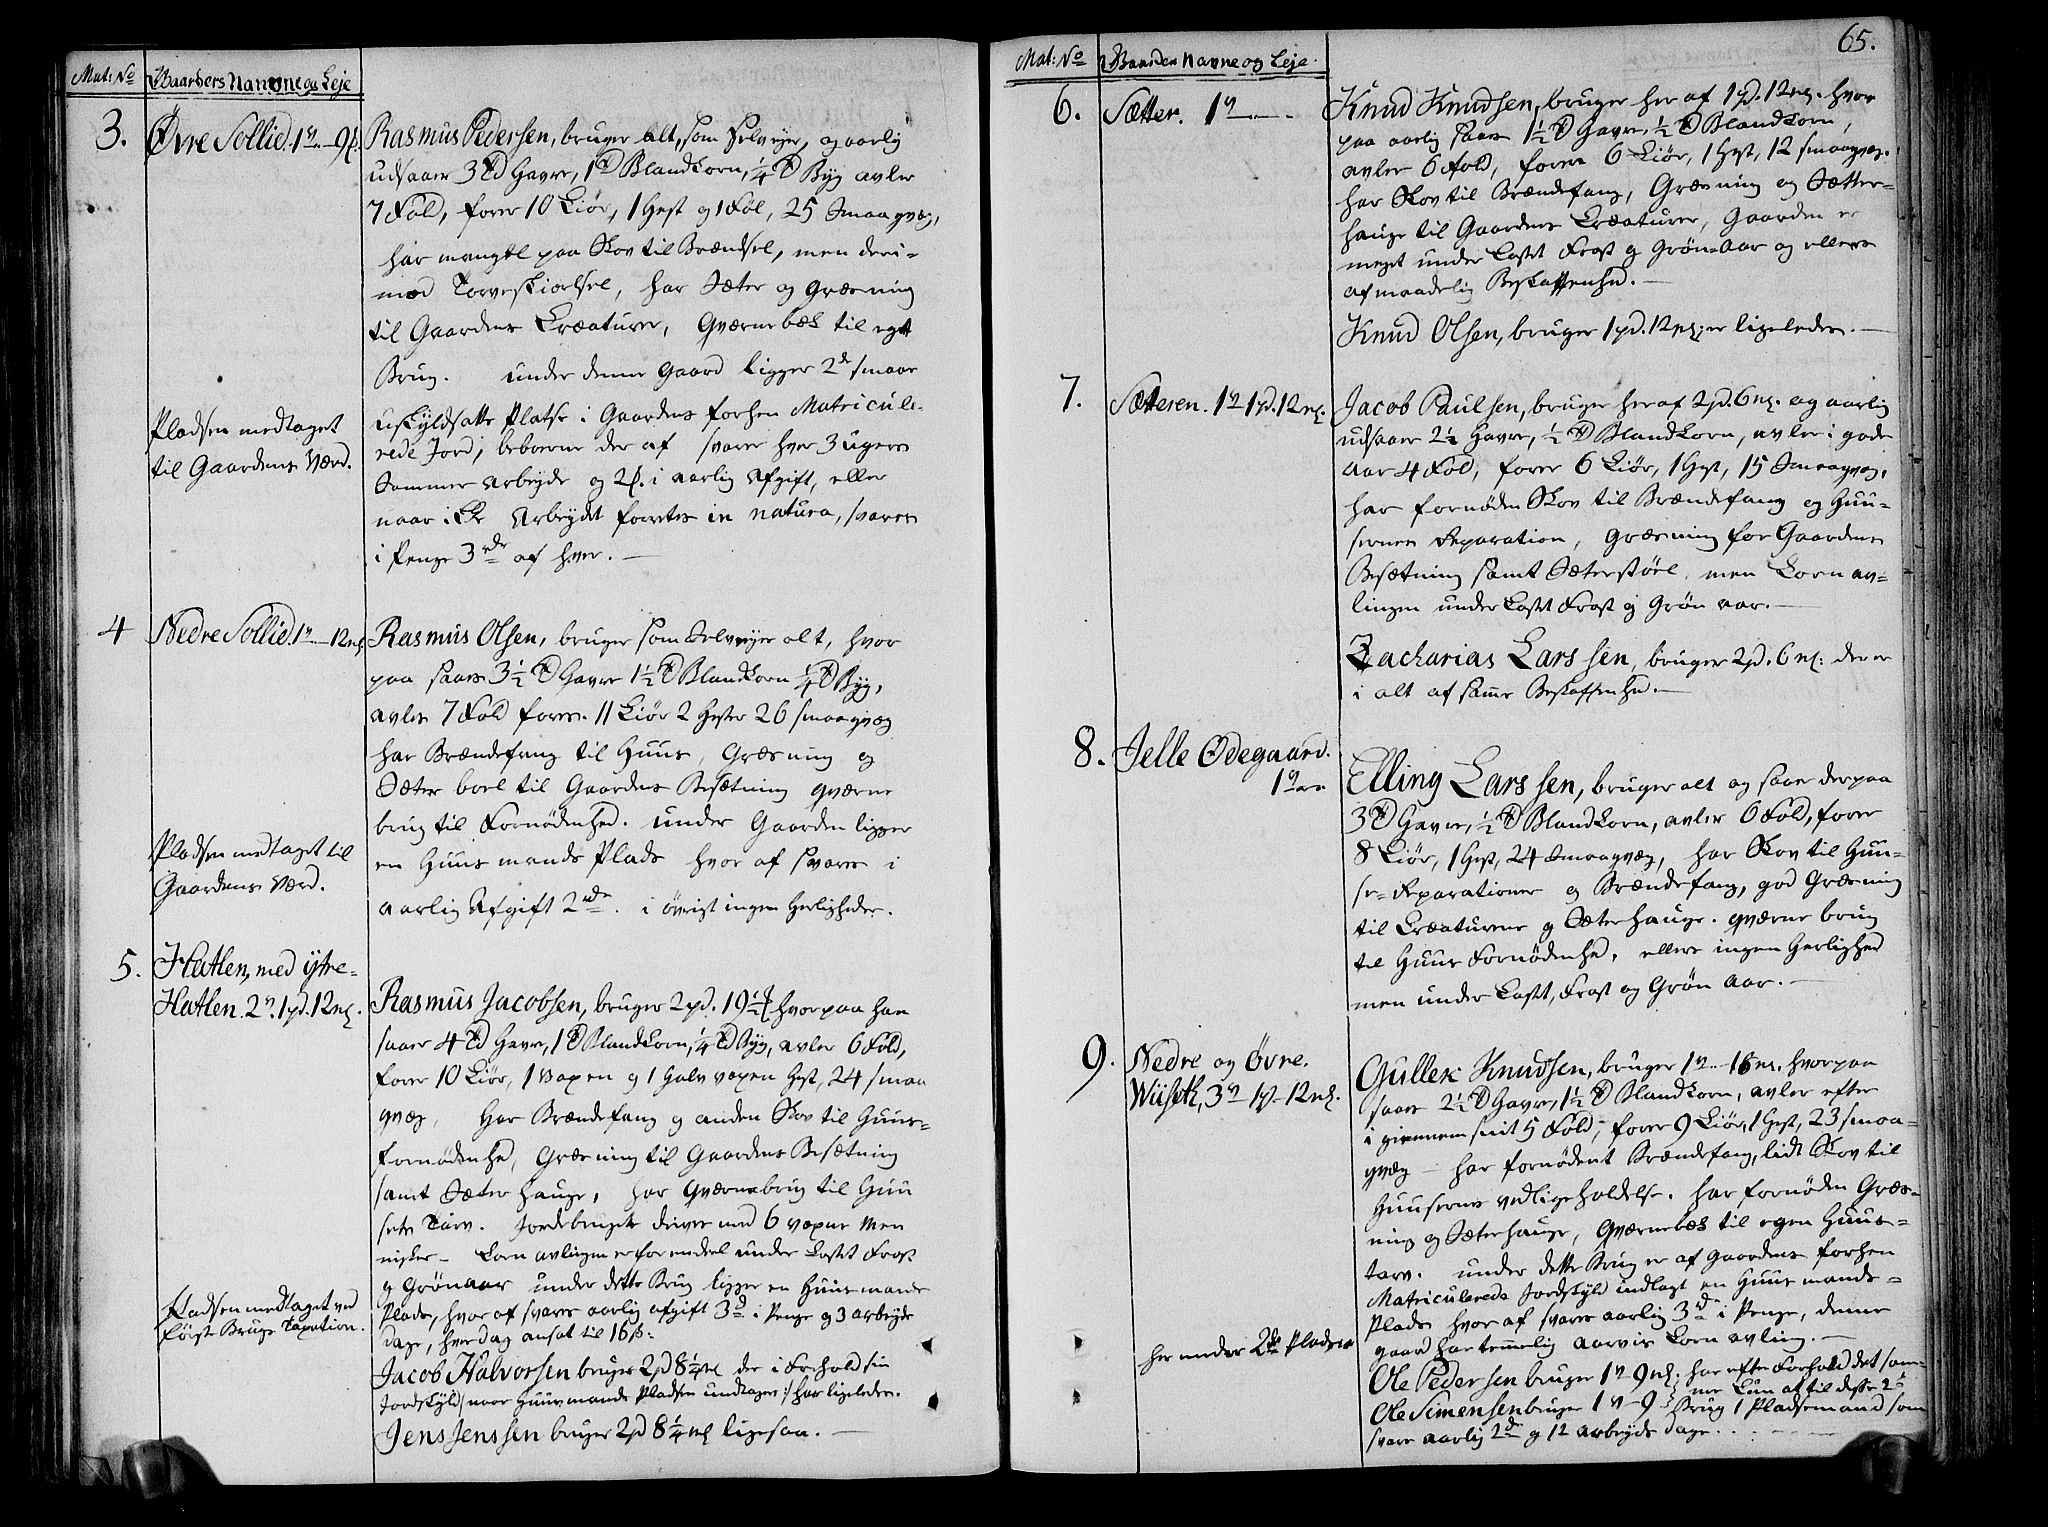 Mat: No
Gaardens Navne og Leje
3.
Øvre Sollid. 1 v. — 9
Rasmus Pedersen, bruger alt, som Selvejer, og aarlig
udsaaer 3 Td Havre, 1 Td Blandkorn, ¼ Td Byg avler
7 Fold, forer 10 Kiør, 1 Hest og 1 Føl, 25 Smaaqvæg,
har mangel paa Skov til Brændsel, men deri-
mod Torveskiørsel, har Sæter og Græsning
til Gaardens Creaturer, Qvernebæk til eget
Brug. under denne Gaard ligger 2de smaae
uskyldsatte Pladse i Gaardens forhen Matricule-
rede Jord; beboerne der af svarer hver 3 ugers
Sommer Arbejde og 2 i aarlig Afgift, eller
naar Arbejdet forrettes in natura, svares
i Penge 3 rd af hver. —
Pladsen medtaget
til Gaardens Værd.
4
Nedre Sollid. 1 v — 12 mk.
Rasmus Olsen, bruger som Selvejer alt, hvor
paa saaes 3½ Td Havre 1½ Td Blandkorn ¼ Td Byg,
avler 7 Fold forer. 11 Kiør 2 Hester 26 smaaqvæg
har Brændefang til Huus, Græsning og
Sæter boel til Gaardens Besætning qværne
brug til Fornødenhed. under Gaarden ligger
en Huus mands Plads hvor af svares i
aarlig Afgift 2 rd. i øvrigt ingen Herligheder.
Pladsen medtaget til
Gaardens Værd.
5.
Hatlen, med ytre-
Hatlen. 2 v. 1 pd. 12 mk.
Rasmus Jacobsen, bruger 2 pd. 19½ hvorpaa han
saaer 4 Td Havre, 1 Td Blandkorn, ¼ Td Byg, avler 6 Fold,
forer 10 Kiør, 1 voxen og 1 halv voxen Hest, 24 smaa
qvæg, har Brændefang og anden Skov til Huus-
fornødenhed, Græsning til Gaardens Besætning
samt Sæter hauge, har Qværnebrug til Huu
sets Tarv. Jordebruget drives med 6 voxne Men
nisker — Korn avlingen er for en deel under kastet Frost
og Grønaar under dette Brug ligger en Huus mands
Plads, hvor af svares aarlig afgift 3 d i Penge og 3 arbejds
dage, hver dag ansat til 16 s:
Pladsen medtaget ved
første Brugs Taxation.
Jacob Halvorsen bruger 2 pd 8¼ mk der i Forhold sin
Jordskyld /: naar Huusmands Pladsen undtages :/ har ligeledes.
Jens Jenssen bruger 2 pd 8¼ mk ligesaa. —
65.
Mat: No
Gaardens Navne og Leje.
6.
Sætter. 1 v — .
Knud Knudsen, bruger her af 1 pd. 12 mk. hvor
paa aarlig saaes 1½ Td Havre, ½ Td Blandkorn,
avler 6 Fold, forer 6 Kiør, 1 Hest, 12 smaaqvæg.
har Skov til Brændefang, Græsning og Sætter-
hauge til Gaardens Creaturer, Gaarden er
meget under kastet Frost og Grønaar og ellers
af maadelig Beskaffenhed. —
Knud Olsen, bruger 1 pd. 12 mk: er ligeledes. —
7.
Sætteren. 1 v 1 pd. 12 mk.
Jacob Paulsen, bruger her af 2 pd. 6 mk. og aarlig
udsaaer 2½ Havre, ½ Td Blandkorn, avler i gode
Aar 4 Fold, forer 6 Kiør, 1 Hest, 15 Smaaqvæg,
har fornøden Skov til Brændefang og Huu-
sernes Reparation, Græsning for Gaardens
Besætning samt Sæterstøel, men Korn av-
lingen under kastet Frost og Grøn aar. —
Zacharias Larssen, bruger 2 pd. 6 mk: der er
i alt af samme Beskaffenhed. —
8.
Jelle Ødegaard.
1 v —
Elling Larssen, bruger alt og saaer derpaa
3 Td Havre, ½ Td Blandkorn, avler 6 Fold, forer
8 Kiør, 1 Hest, 24 Smaaqvæg, har Skov til Huu-
se- Reparationer og Brændefang, god Græsning
til Creaturene og Sæterhauge. qværne brug
til Huus Fornødenhed, ellers ingen Herlighed
men under kastet, Frost og Grøn Aar. —
9.
Nedre og Øvre.
Wiiseth, 3 v — 1 p — 12 mk.
Gullek Knudsen, bruger 1 v — 16 mk. hvorpaa
saaes 2½ Td Havre, 1½ Td Blandkorn, avler efter
i giennem snit 5 Fold, forer 9 Kiør, 1 Hest, 23 smaa-
qvæg — har fornødent Brændefang, lidt Skov til
Huusernes vedligeholdelse. har fornøden Græs-
ning og Sæterhauge, Qværnebæk til egen Huus-
tarv. under dette Brug er af Gaardens forhen
Matriculerede Jordskyld indlagt en Huus mands-
Plads hvor af svares aarlig 3 rd i Penge, denne
gaard har temmelig aarvis Korn avling. —
her under 2de Pladser
Ole Pedersen bruger 1 v 9 mk. har efter Forhold det sam-
Ole Simensen bruger 1 v — 9 me Kun at til disse 2
Brug 1 Pladsemand som
svarer aarlig 2 rd og 12 arbejds dage. . . — — —